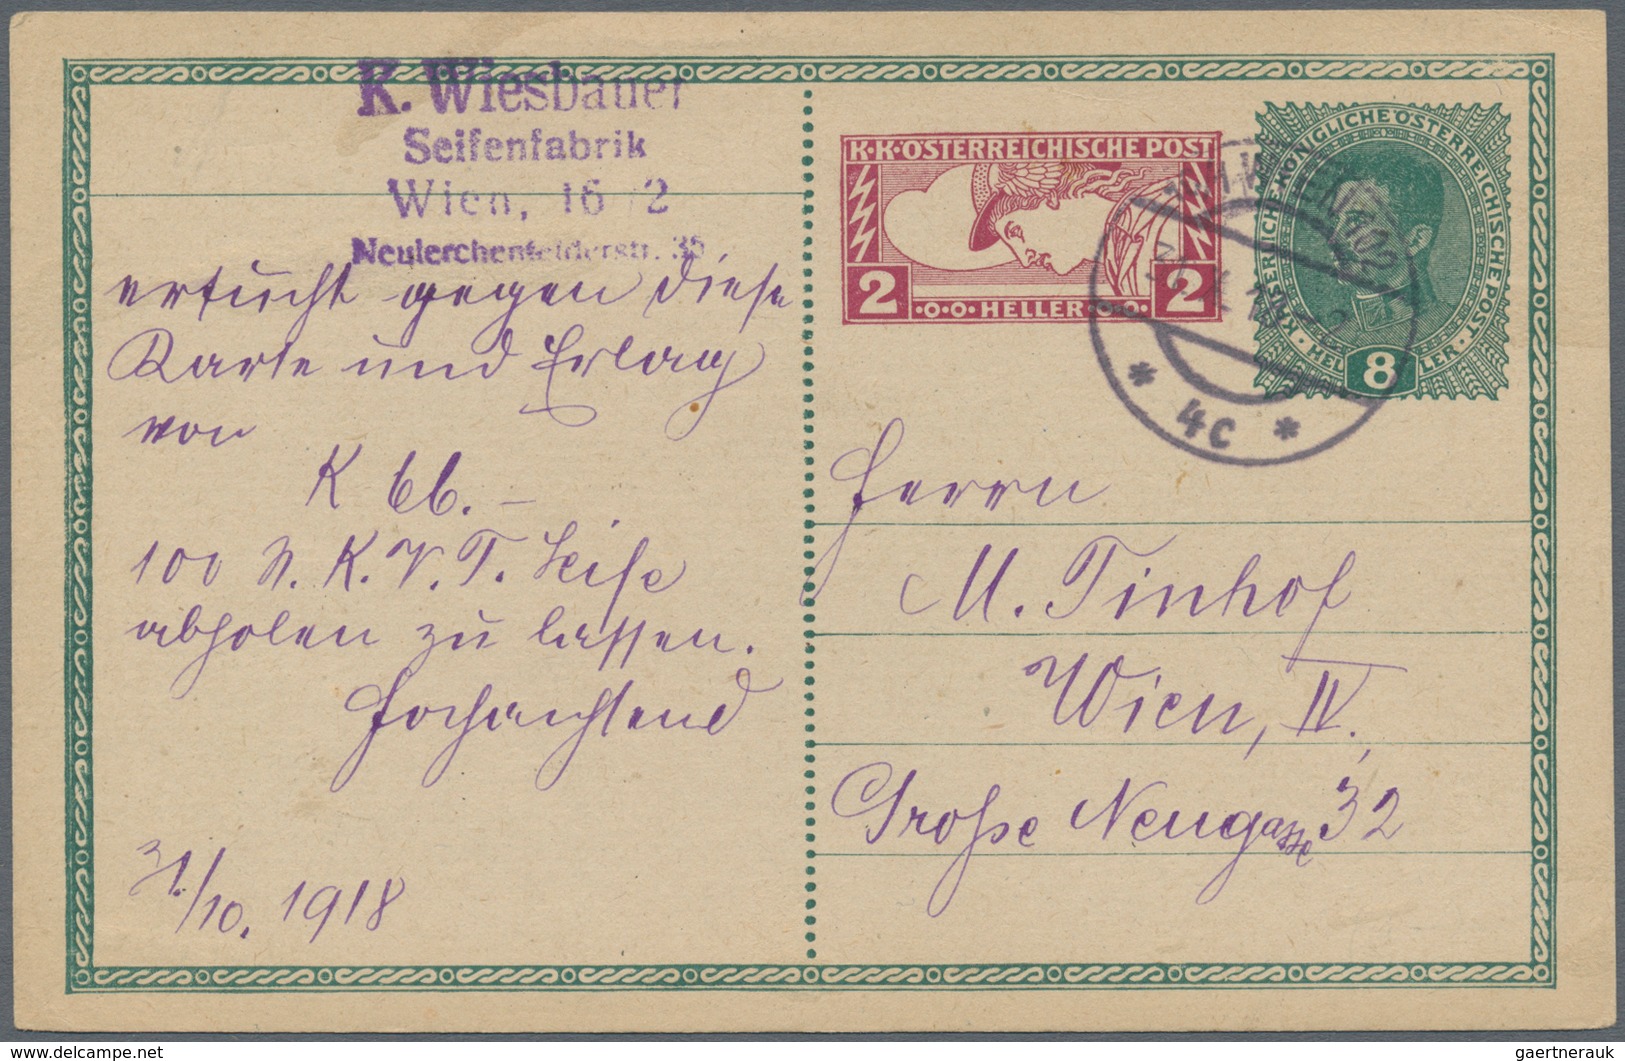 K. Wiesbauer
Seifenfabrik
Wien, 16/2
Neulerchenfelderstr. 35
ersucht gegen diese
Karte und Erlag
von
K 66.–
100 St. K.V.T. Seife
abholen zu lassen.
Hochachtend
31./10. 1918
K·K·ÖSTERREICHISCHE POST
2 ·O·O·HELLER·O·O· 2
KAISERLICH KÖNIGLICHE ÖSTERREICHISCHE POST
HELLER
8
WIEN
31. X. 18
* 4c *
Herrn
M. Tinhof
Wien, IV.,
Große Neugasse 32
delcampe.net
gaertnerauk